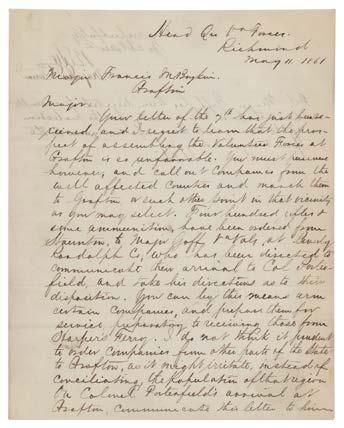 Head Qrs Va Forces
Richmond
May 11. 1861
Major Francis M Boykin.
Grafton
Major
Your letter of the 7th has just been re-
ceived, and I regret to learn that the pros-
pect of assembling the Volunteer Forces at
Grafton is so unfavorable. You must persevere
however, and call out Companies from the
well affected Counties and march them
to Grafton or such other point in that vicinity
as you may select. Four hundred rifles &
some ammunition, have been ordered from
Staunton, to Major Goff at Beverly
Randolph Co, who has been directed to
communicate their arrival to Col Porter-
field, and take his directions as to their
disposition. You can by this means arm
certain companies, and prepare them for
service, preparatory to receiving those from
Harpers Ferry. I do not think it prudent
to order companies from other parts of the state
to Grafton, as it might irritate, instead of
conciliating, the population of that region
On Colonel Porterfield's arrival at
Grafton, communicate this letter to him